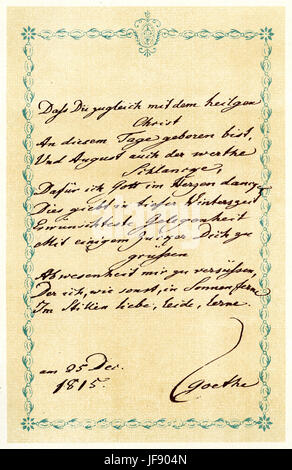 Daß Du zugleich mit dem heilgen
Christ
An diesem Tage geboren bist,
Und August auch der werthe
Schlanke,
Dafür ich Gott im Herzen danke,
Dies giebt in tiefer Winterszeit
Erwünschteste Gelegenheit
Mit einigem Zucker Dich zu
grüßen
Abwesenheit mir zu versüßen,
Der ich, wie sonst, in Sonnenferne
Im Stillen liebe, leide, lerne.
am 25 Dec.
1815.
Goethe
alamy
alamy
Image ID: JF904N
www.alamy.com